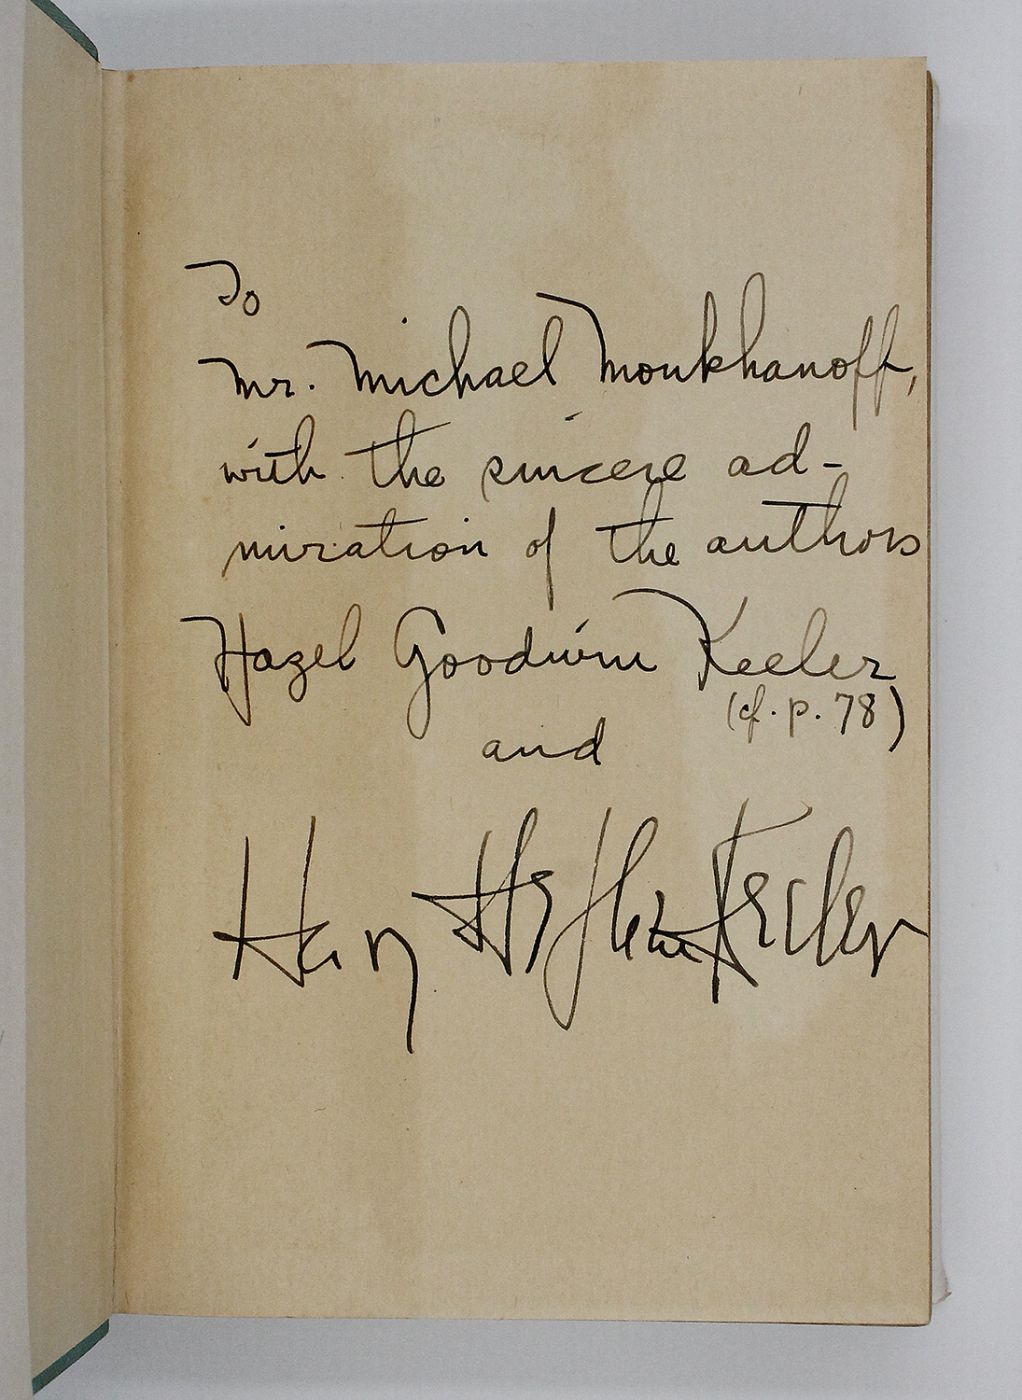 To
Mr. Michael Moukhanoff,
with the sincere ad-
miration of the authors
Hazel Goodwin Keeler
(cf. p. 78)
and
Harry Stephen Keeler